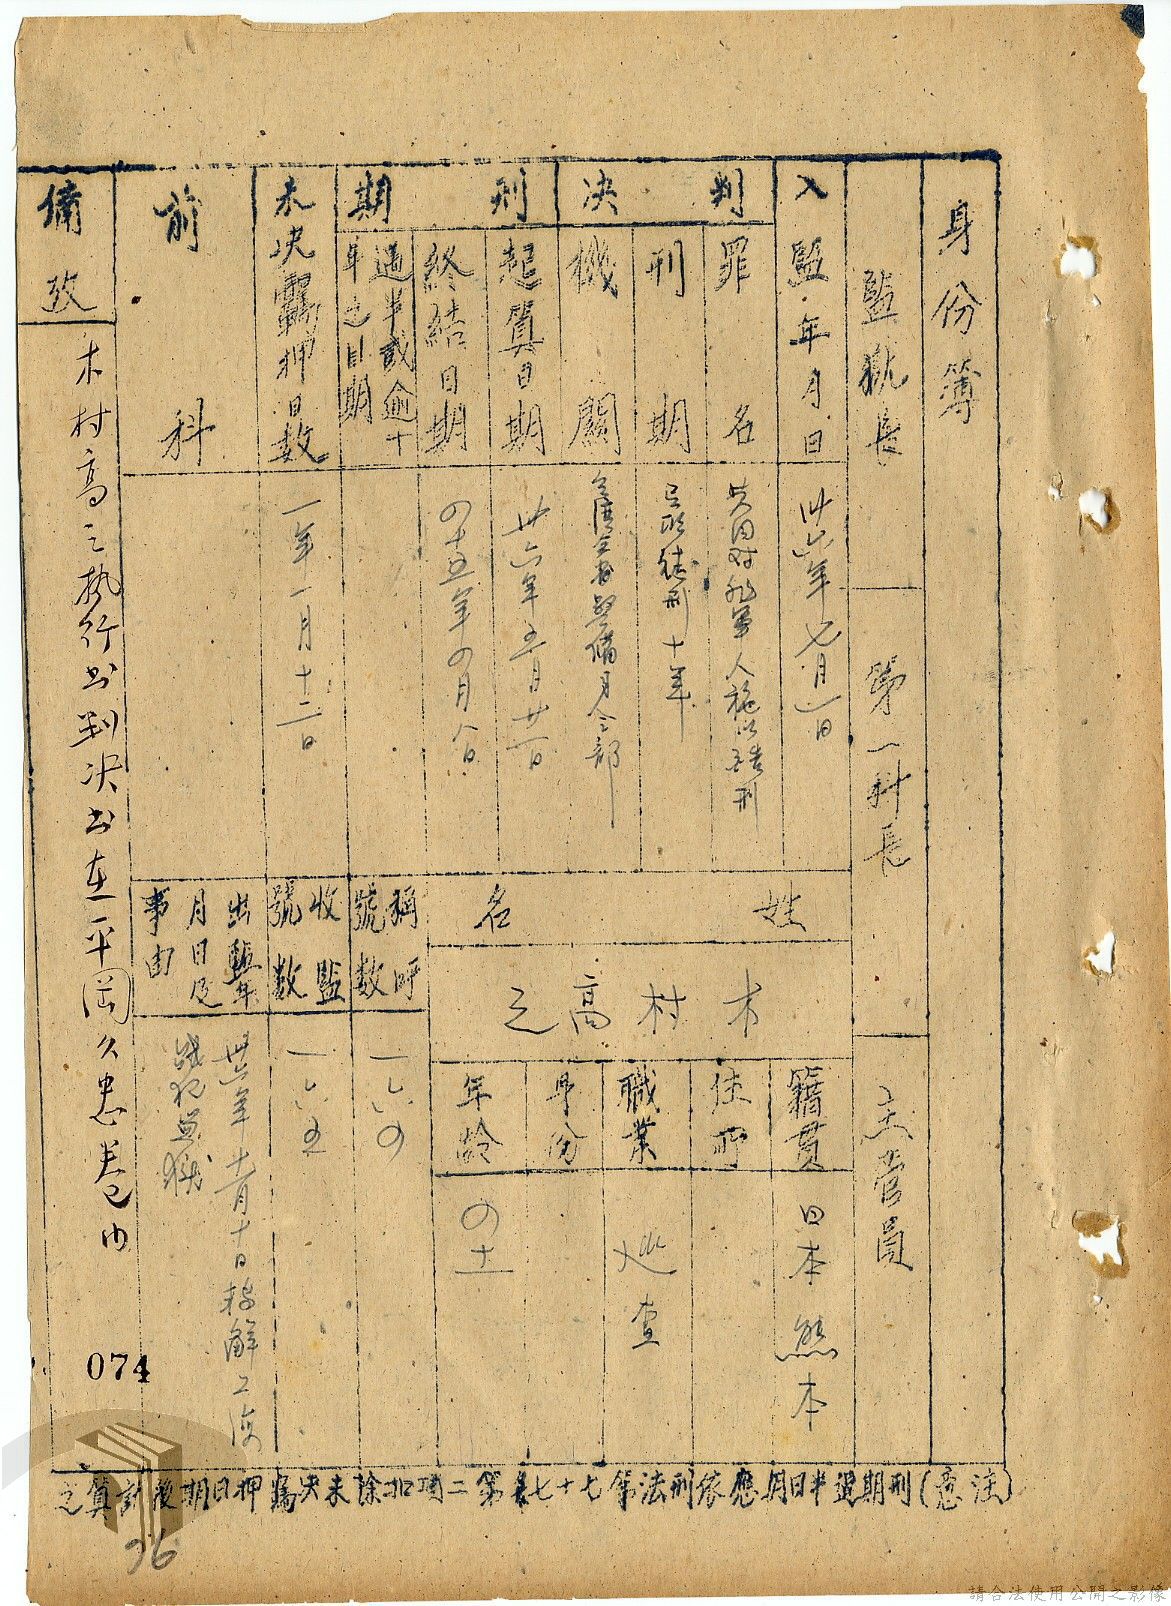 身份簿
監獄長
第一科長
主管員
入監年月日
卅六年七月一日
判決
罪名
共同对非軍人施以酷刑
刑期
有期徒刑十年
機關
台湾全省警備司令部
刑期
起算日期
卅六年五月廿一日
終結日期
四十五年四月八日
過半或逾十年之日期
未決羈押日数
一年一月十二日
前科
姓名
木村高之
籍貫
日本熊本
住所
職業
巡查
身份
年齡
四十一
稱呼號数
一六四
收監號数
一六五
出監年月日及事由
卅六年十一月十日移解上海
战犯監獄
備攷
木村高之執行书判决书在平岡久忠卷内
(注意)刑期過半日期應依刑法第七十七条第二項扣除未決羈押日期後計算之
074
76
請合法使用公開之影像